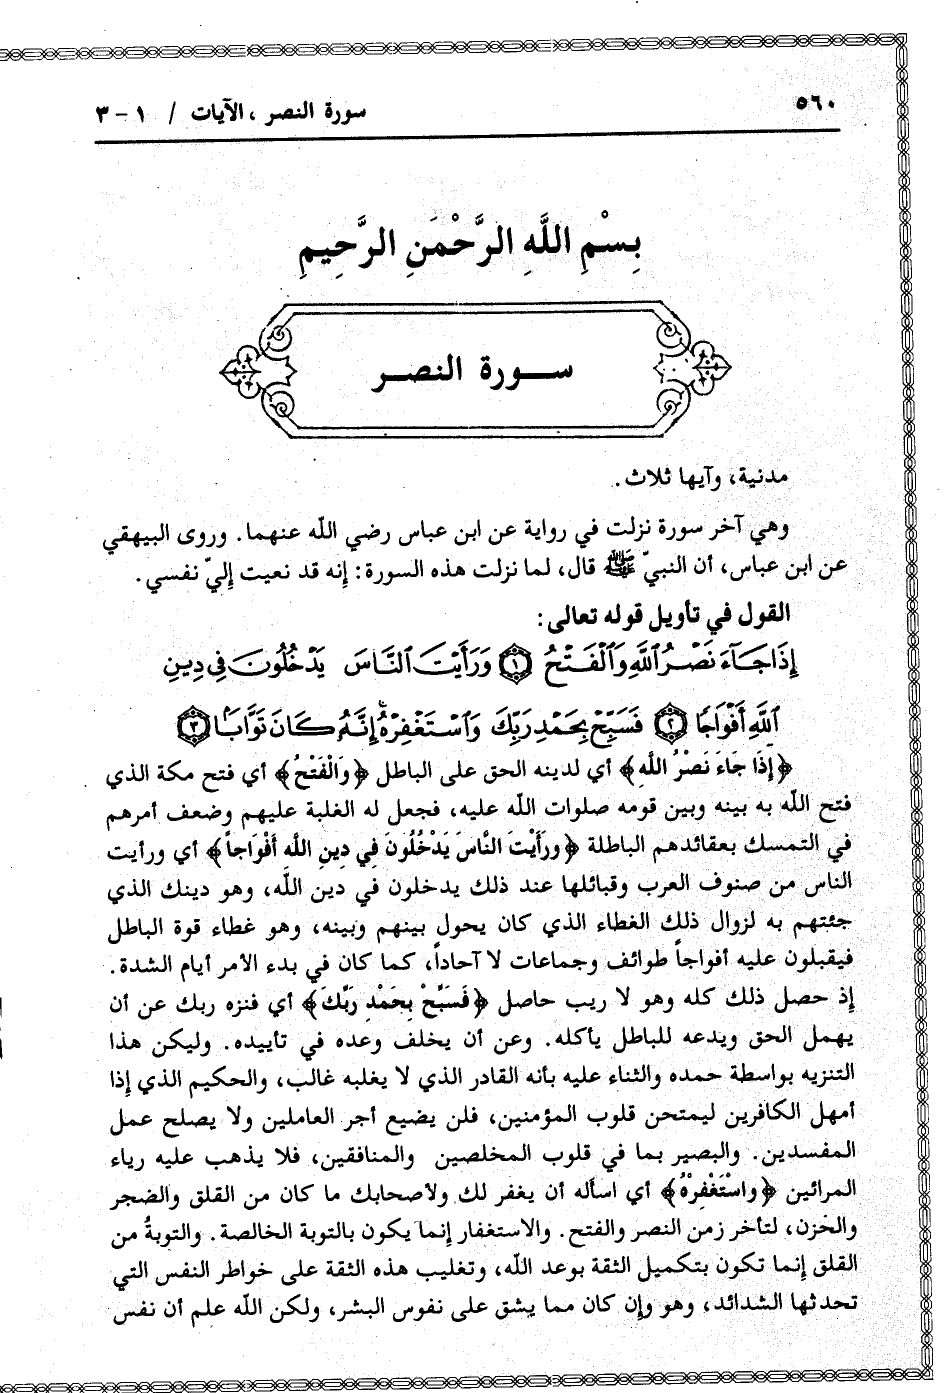 ٥٦٠
سورة النصر ، الآيات / ١ - ٣
بِسْمِ اللَّهِ الرَّحْمَنِ الرَّحِيمِ
سـورة النصـر
مدنية، وآيها ثلاث.
وهي آخر سورة نزلت في رواية عن ابن عباس رضي اللّه عنهما. وروى البيهقي
عن ابن عباس، أن النبيّ ﷺ قال، لما نزلت هذه السورة: إنه قد نعيت إليّ نفسي.
القول في تأويل قوله تعالى:
إِذَا جَآءَ نَصْرُ ٱللَّهِ وَٱلْفَتْحُ ﴿١﴾ وَرَأَيْتَ ٱلنَّاسَ يَدْخُلُونَ فِي دِينِ
ٱللَّهِ أَفْوَاجًا ﴿٢﴾ فَسَبِّحْ بِحَمْدِ رَبِّكَ وَٱسْتَغْفِرْهُ إِنَّهُ كَانَ تَوَّابًا ﴿٣﴾
﴿إِذَا جَاءَ نَصْرُ اللَّهِ﴾ أي لدينه الحق على الباطل ﴿وَالْفَتْحُ﴾ أي فتح مكة الذي
فتح اللّه به بينه وبين قومه صلوات اللّه عليه، فجعل له الغلبة عليهم وضعف أمرهم
في التمسك بعقائدهم الباطلة ﴿ورَأَيْتَ النَّاسَ يَدْخُلُونَ فِي دِينِ اللَّهِ أَفْوَاجاً﴾ أي ورأيت
الناس من صنوف العرب وقبائلها عند ذلك يدخلون في دين اللّه، وهو دينك الذي
جئتهم به لزوال ذلك الغطاء الذي كان يحول بينهم وبينه، وهو غطاء قوة الباطل
فيقبلون عليه أفواجاً طوائف وجماعات لا آحاداً، كما كان في بدء الأمر أيام الشدة.
إذ حصل ذلك كله وهو لا ريب حاصل ﴿فَسَبِّحْ بِحَمْدِ رَبِّكَ﴾ أي فنزه ربك عن أن
يهمل الحق ويدعه للباطل يأكله. وعن أن يخلف وعده في تأييده. وليكن هذا
التنزيه بواسطة حمده والثناء عليه بأنه القادر الذي لا يغلبه غالب، والحكيم الذي إذا
أمهل الكافرين ليمتحن قلوب المؤمنين، فلن يضيع أجر العاملين ولا يصلح عمل
المفسدين. والبصير بما في قلوب المخلصين والمنافقين، فلا يذهب عليه رياء
المرائين ﴿واسْتَغْفِرْهُ﴾ أي اسأله أن يغفر لك ولأصحابك ما كان من القلق والضجر
والحزن، لتأخر زمن النصر والفتح. والاستغفار إنما يكون بالتوبة الخالصة. والتوبةُ من
القلق إنما تكون بتكميل الثقة بوعد اللّه، وتغليب هذه الثقة على خواطر النفس التي
تحدثها الشدائد، وهو وإن كان مما يشق على نفوس البشر، ولكن اللّه علم أن نفس